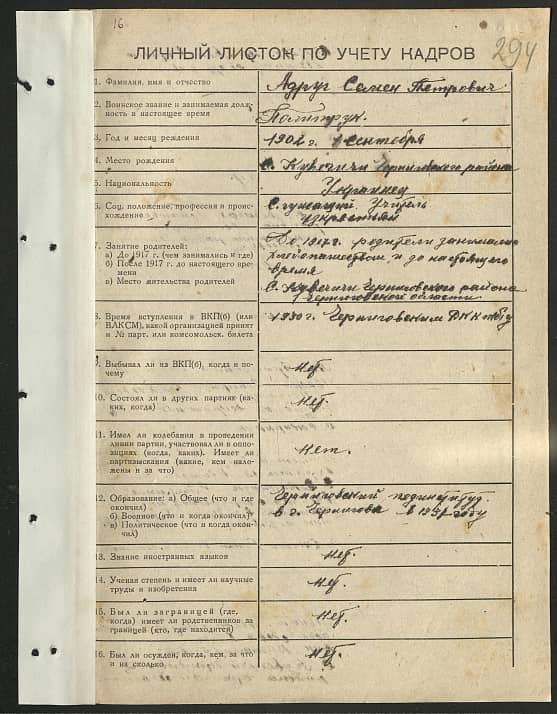 16
294
ЛИЧНЫЙ ЛИСТОК ПО УЧЕТУ КАДРОВ
1. Фамилия, имя и отчество
Адруг Семен Петрович
2. Воинское звание и занимаемая долж-
ность в настоящее время
Политрук.
3. Год и месяц рождения
1902 г. 1 сентября
4. Место рождения
с. Кувечичи Черниговского района
5. Национальность
Украинец
6. Соц. положение, профессия и проис-
хождение
Служащий. Учитель
из крестьян
7. Занятие родителей:
а) До 1917 г. (чем занимались и где)
б) После 1917 г. до настоящего вре-
мени
в) Место жительства родителей
До 1917 г. родители занимались
хлебопашеством и до настоящего
время
с. Кувечичи Черниговского района
Черниговской области
8. Время вступления в ВКП(б) (или
ВЛКСМ), какой организацией принят
и № парт. или комсомольск. билета
1930 г. Черниговским
9. Выбывал ли из ВКП(б), когда и по-
чему
Нет.
10. Состоял ли в других партиях (ка-
ких, когда)
Нет.
11. Имел ли колебания в проведении
линии партии, участвовал ли в оппо-
зициях (когда, каких). Имеет ли
партвзыскания (какие, кем нало-
жены и за что)
Нет.
12. Образование: а) Общее (что и где
окончил)
б) Военное (что и когда окончил)
в) Политическое (что и когда окон-
чил)
Черниговский пединститут.
в г. Чернигове в году
13. Знание иностранных языков
Нет.
14. Ученая степень и имеет ли научные
труды и изобретения
Нет.
15. Был ли заграницей (где,
когда) имеет ли родственников за
границей (кто, где находится)
Нет.
16. Был ли осужден, когда, кем, за что
и на сколько
Нет.